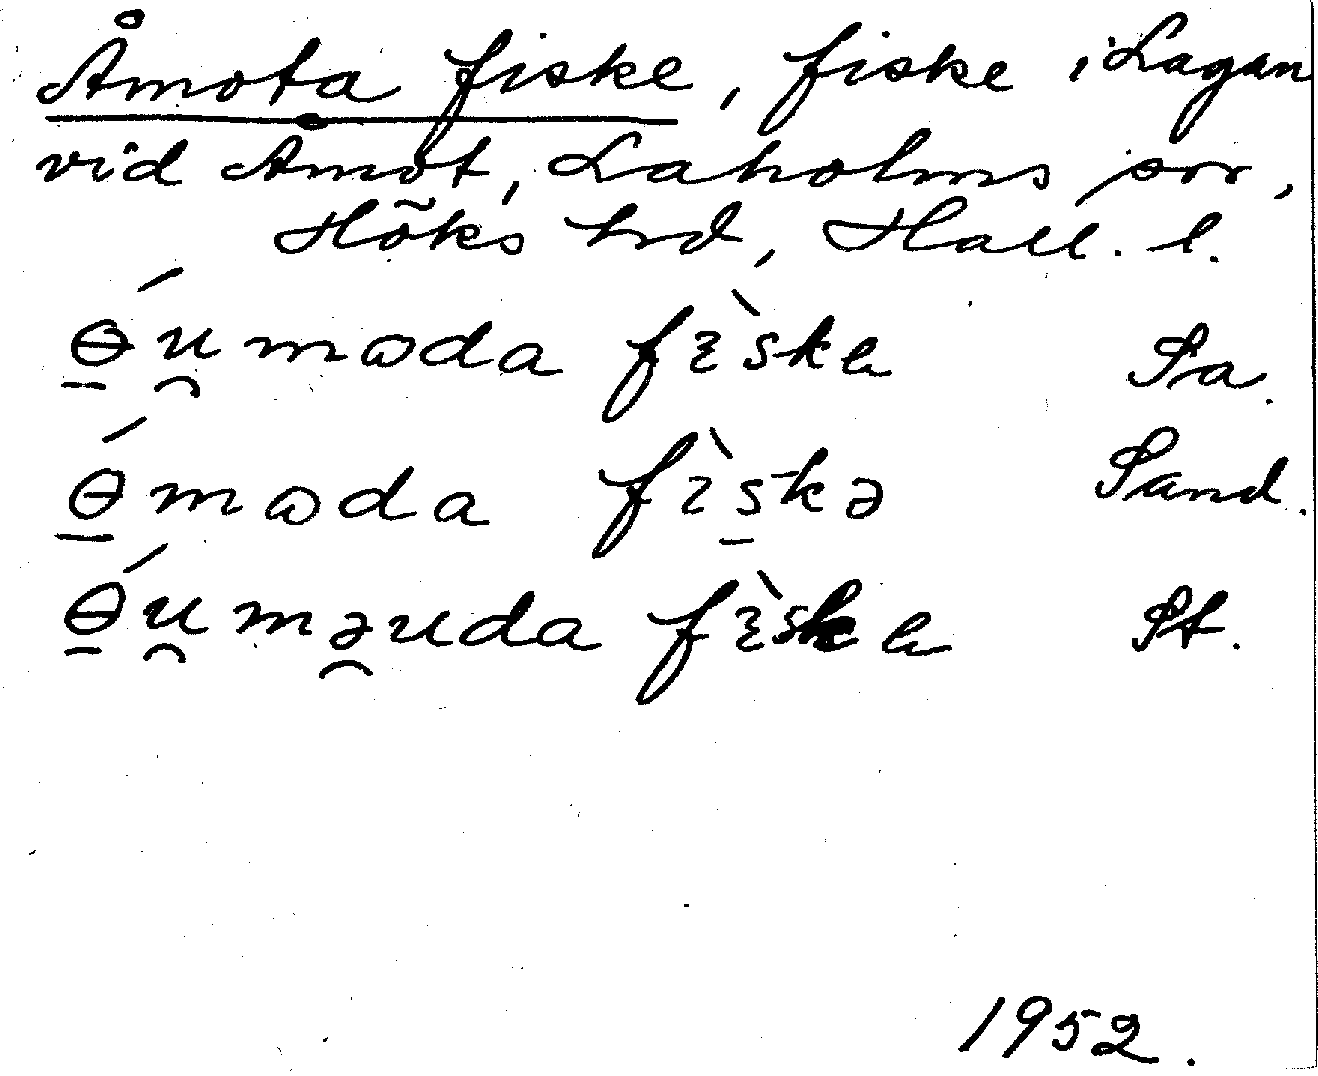 Åmota fiske, fiske i Lagan
vid Åmot, Laholms srr,
Höks hrd, Hall. l.
ɵ́u̯mɷda fɛ̀ske Sa.
ɵ́mɷda fìskə Sand.
ɵ́u̯mə̯uda fɛ̀ske St.
1952.